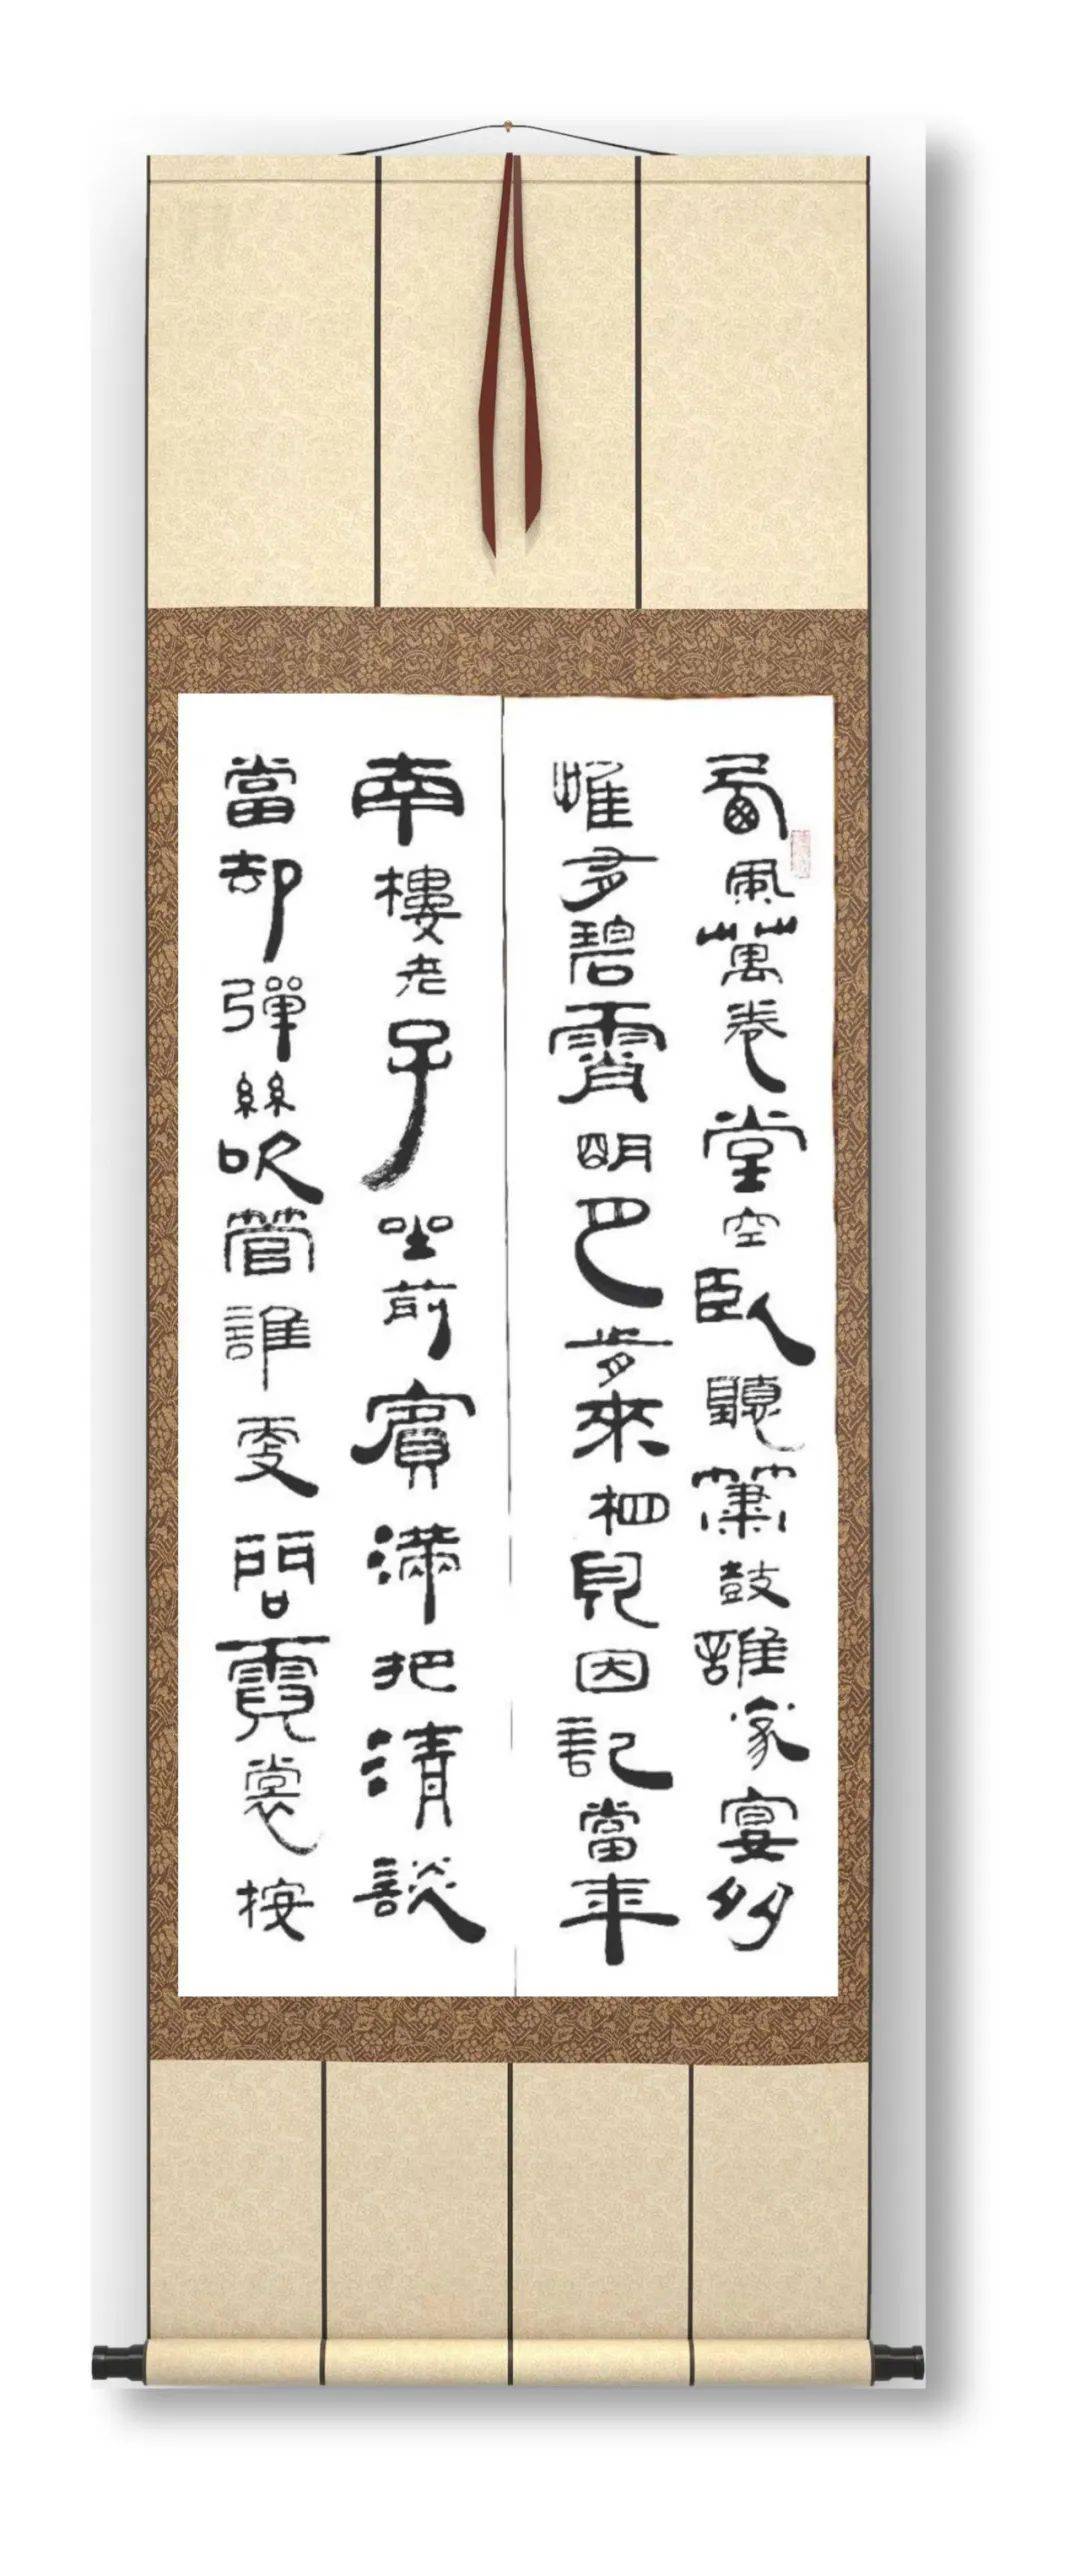 西風萬卷堂空臥聽簫鼓誰家宴多
惟有碧霄明巴肯來相見因記當年
南樓老子坐前賓滿把清談
當却彈絲吹管誰更問霓裳按